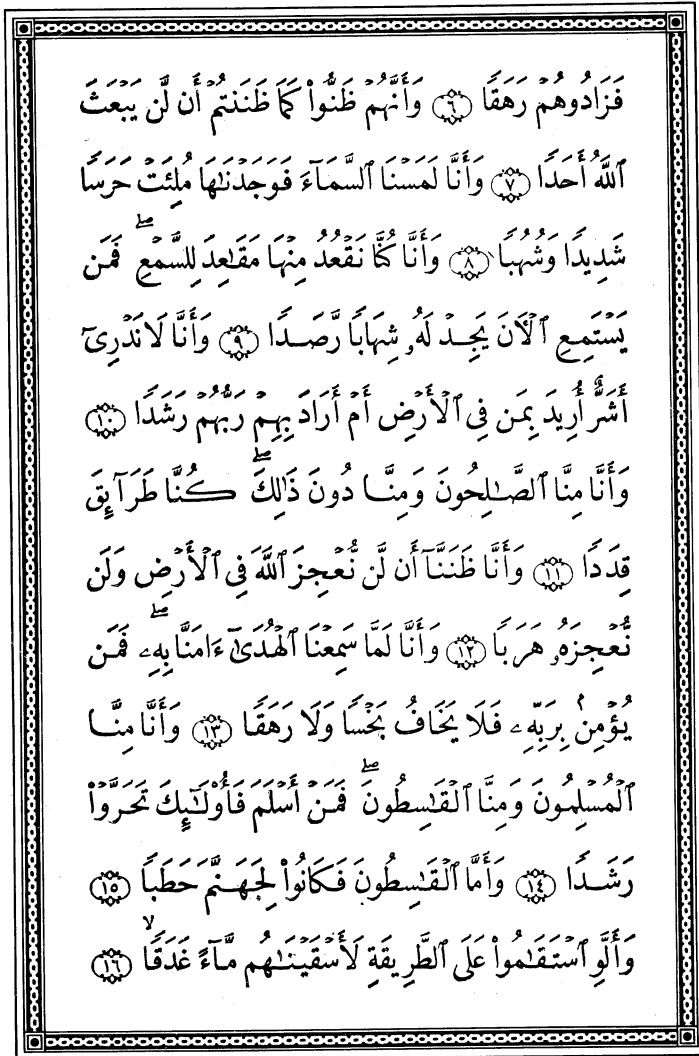 فَزَادُوهُمْ رَهَقًا ٦ وَأَنَّهُمْ ظَنُّوا۟ كَمَا ظَنَنتُمْ أَن لَّن يَبْعَثَ
ٱللَّهُ أَحَدًا ٧ وَأَنَّا لَمَسْنَا ٱلسَّمَآءَ فَوَجَدْنَٰهَا مُلِئَتْ حَرَسًا
شَدِيدًا وَشُهُبًا ٨ وَأَنَّا كُنَّا نَقْعُدُ مِنْهَا مَقَٰعِدَ لِلسَّمْعِ ۖ فَمَن
يَسْتَمِعِ ٱلْـَٔانَ يَجِدْ لَهُۥ شِهَابًا رَّصَدًا ٩ وَأَنَّا لَا نَدْرِىٓ
أَشَرٌّ أُرِيدَ بِمَن فِى ٱلْأَرْضِ أَمْ أَرَادَ بِهِمْ رَبُّهُمْ رَشَدًا ١٠
وَأَنَّا مِنَّا ٱلصَّٰلِحُونَ وَمِنَّا دُونَ ذَٰلِكَ ۖ كُنَّا طَرَآئِقَ
قِدَدًا ١١ وَأَنَّا ظَنَنَّآ أَن لَّن نُّعْجِزَ ٱللَّهَ فِى ٱلْأَرْضِ وَلَن
نُّعْجِزَهُۥ هَرَبًا ١٢ وَأَنَّا لَمَّا سَمِعْنَا ٱلْهُدَىٰٓ ءَامَنَّا بِهِۦ ۖ فَمَن
يُؤْمِنۢ بِرَبِّهِۦ فَلَا يَخَافُ بَخْسًا وَلَا رَهَقًا ١٣ وَأَنَّا مِنَّا
ٱلْمُسْلِمُونَ وَمِنَّا ٱلْقَٰسِطُونَ ۖ فَمَنْ أَسْلَمَ فَأُو۟لَٰٓئِكَ تَحَرَّوْا۟
رَشَدًا ١٤ وَأَمَّا ٱلْقَٰسِطُونَ فَكَانُوا۟ لِجَهَنَّمَ حَطَبًا ١٥
وَأَلَّوِ ٱسْتَقَٰمُوا۟ عَلَى ٱلطَّرِيقَةِ لَأَسْقَيْنَٰهُم مَّآءً غَدَقًا ۙ ١٦